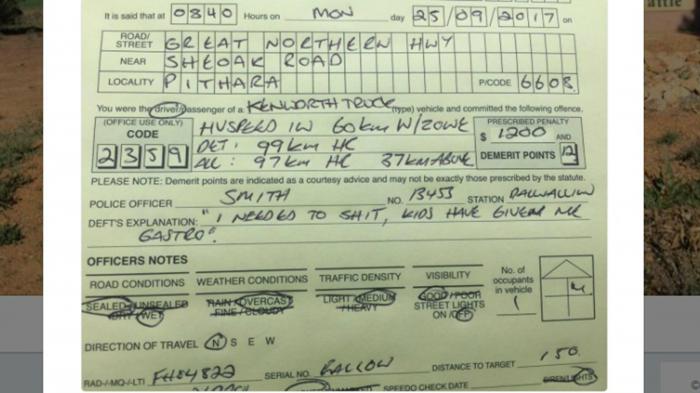 attle
It is said that at 0840 Hours on MON day 25/09/2017 on
ROAD/ STREET GREAT NORTHERN HWY
NEAR SHEOAK ROAD
LOCALITY PITHARA P/CODE 6608
You were the driver/passenger of a KENWORTH TRUCK (type) vehicle and committed the following offence.
(OFFICE USE ONLY) CODE 2359
HVSPEED IN 60km W/ZONE
DET: 99km HC
ALL: 97km HC 37KM ABOVE
PRESCRIBED PENALTY $ 1200 AND
DEMERIT POINTS 12
PLEASE NOTE: Demerit points are indicated as a courtesy advice and may not be exactly those prescribed by the statute.
POLICE OFFICER SMITH NO. 13453 STATION DALWALLINU
DEFT'S EXPLANATION: "I NEEDED TO SHIT, KIDS HAVE GIVEN ME
GASTRO".
OFFICERS NOTES
ROAD CONDITIONS WEATHER CONDITIONS TRAFFIC DENSITY VISIBILITY No. of occupants in vehicle
SEALED/UNSEALED RAIN/OVERCAST LIGHT/MEDIUM GOOD/POOR 1
DRY/WET FINE/CLOUDY /HEAVY STREET LIGHTS
ON/OFF
DIRECTION OF TRAVEL N S E W
RAD-/-MQ-/-LTI FH04822 SERIAL NO. BALLOW DISTANCE TO TARGET 150
SPEEDO CHECK DATE SIREN/LIGHTS